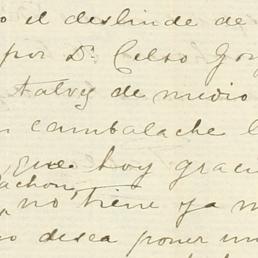 o el deslinde de
por Dn. Celso Gon
talvez de medio
n cambalache l
que hoy graci
achon,
no tiene ya m
no desea poner un